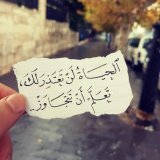 الحياة لن تعتذر لك،
تعلم أن تتجاوز..